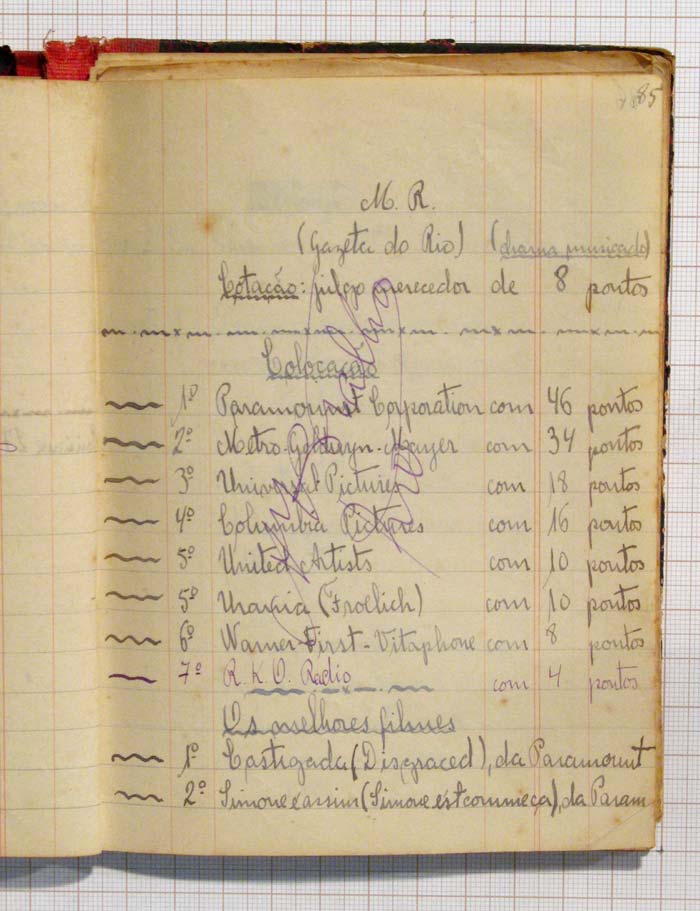 85
M. R.
(Gazeta do Rio) (drama musicado)
Cotação: julgo merecedor de 8 pontos
Colocação
1º Paramount Corporation com 46 pontos
2º Metro-Goldwyn-Mayer com 34 pontos
3º Universal Pictures com 18 pontos
4º Columbia Pictures com 16 pontos
5º United Artists com 10 pontos
5º Urania (Froelich) com 10 pontos
6º Warner-First-Vitaphone com 8 pontos
7º R. K. O. Radio com 4 pontos
Os melhores filmes
1º Castigada (Disgraced), da Paramount
2º Simone é assim (Simone est comme ça), da Param